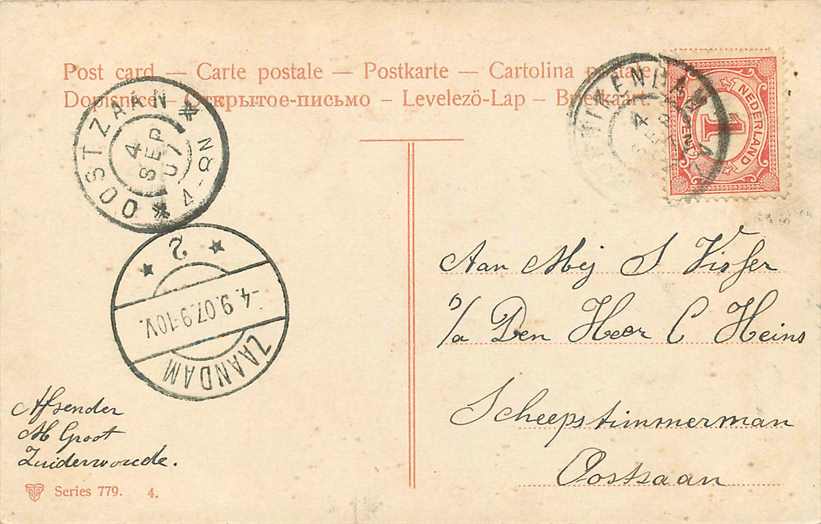 Post card — Carte postale — Postkarte — Cartolina postale
Dopisnice — Открытое-письмо — Levelezö-Lap — Briefkaart
OOSTZAAN
4
SEP
07
4-8N
2
-4.9.07.9-10V.
ZAANDAM
4
SEP
NEDERLAND
1
Aan Mej S Visser
p/a Den Heer C Heins
Scheepstimmerman
Oostzaan
Afsender
M Groot
Zuiderwoude.
Series 779. 4.